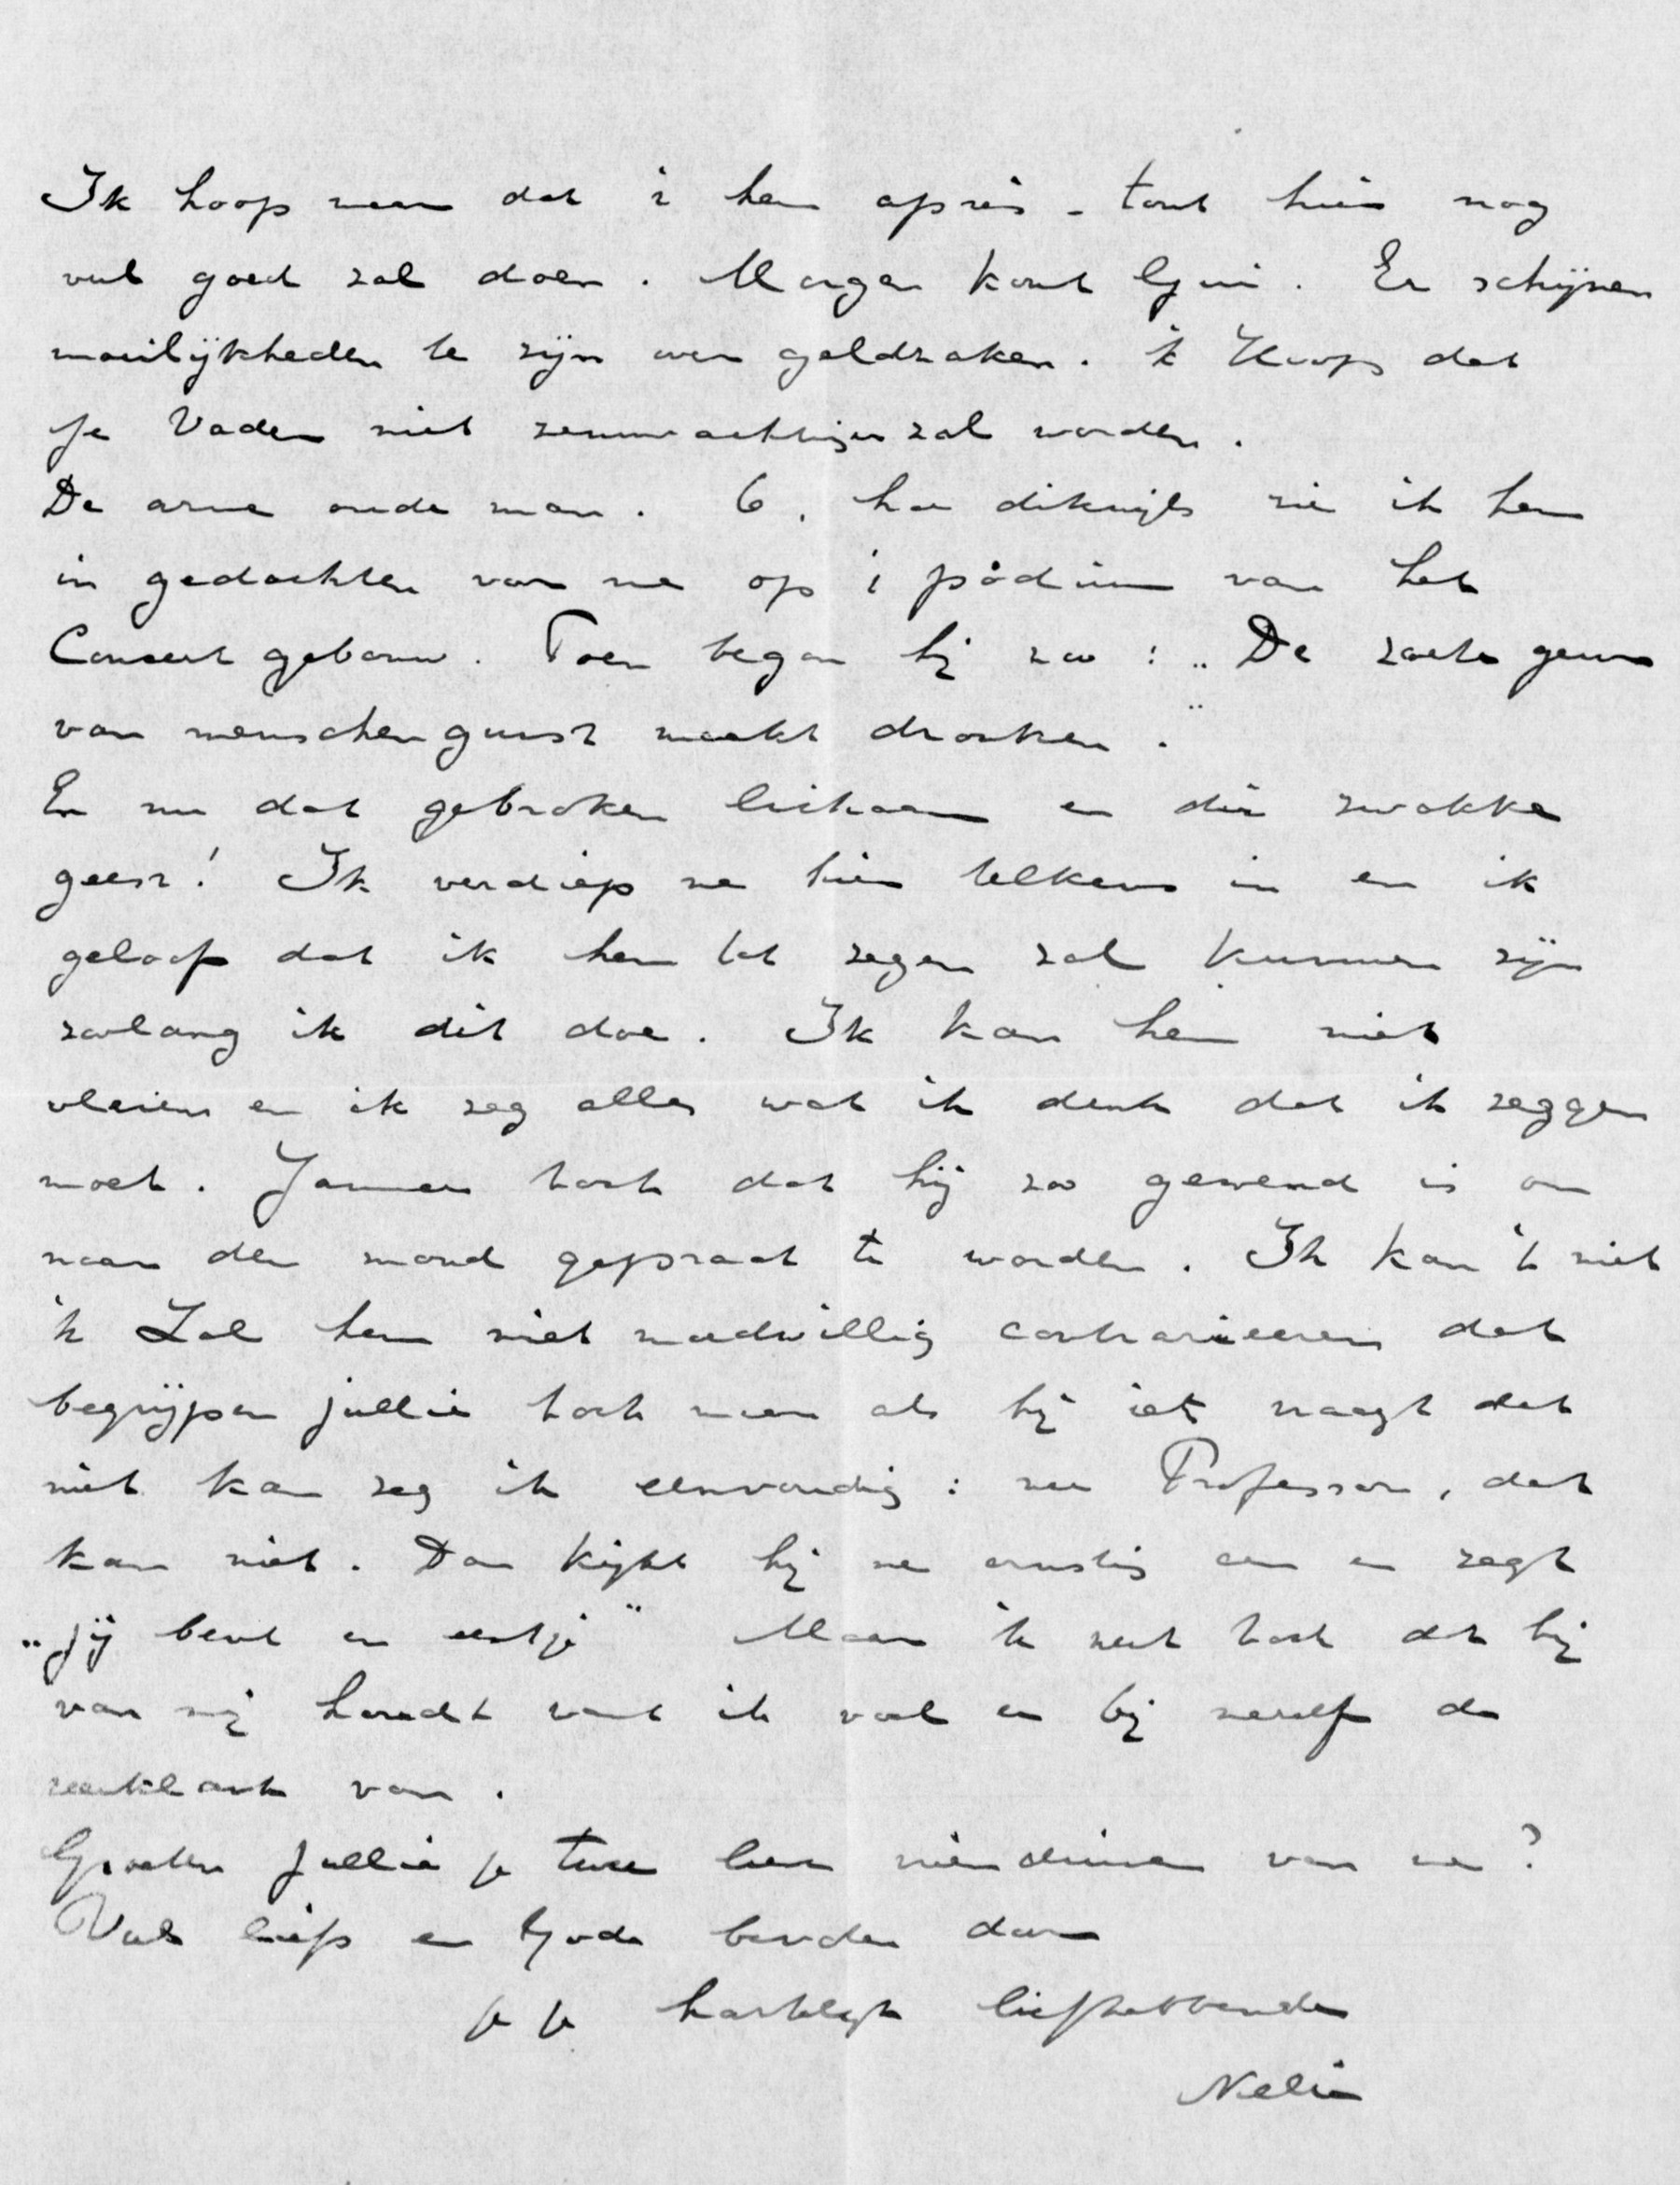 Ik hoop maar dat 't hem après-tout hier nog
veel goed zal doen. Morgen komt Gini. Er schijnen
moeilijkheden te zijn over geldzaken. 'k Hoop dat
je Vader niet zenuwachtiger zal worden.
De arme oude man. O, hoe dikwijls zie ik hem
in gedachten voor me op 't pódium van het
Concert gebouw. Toen begon hij zoo: „De zoete geur
van menschengunst maakt dronken."
En nu dat gebroken lichaam en die zwakke
geest! Ik verdiep me hier telkens in en ik
geloof dat ik hem tot zegen zal kunnen zijn
zoolang ik dit doe. Ik kan hem niet
vleien en ik zeg alles wat ik denk dat ik zeggen
moet. Jammer toch dat hij zoo gewend is om
naar den mond gepraat te worden. Ik kan 't niet
'k Zal hem niet moedwillig contrarieeren dat
begrijpen jullie toch maar als hij iets vraagt dat
niet kan zeg ik eenvoudig: nee Professor, dat
kan niet. Dan kijkt hij me ernstig aan en zegt
„jij bent er eentje" Maar 'k weet toch dat hij
van mij houdt want ik voel er bij mezelf de
weerklank van.
Groeten jullie je twee lieve vriendinnen van me?
Veel liefs en Gode bevolen door
je je hartelijk liefhebbende
Nelie